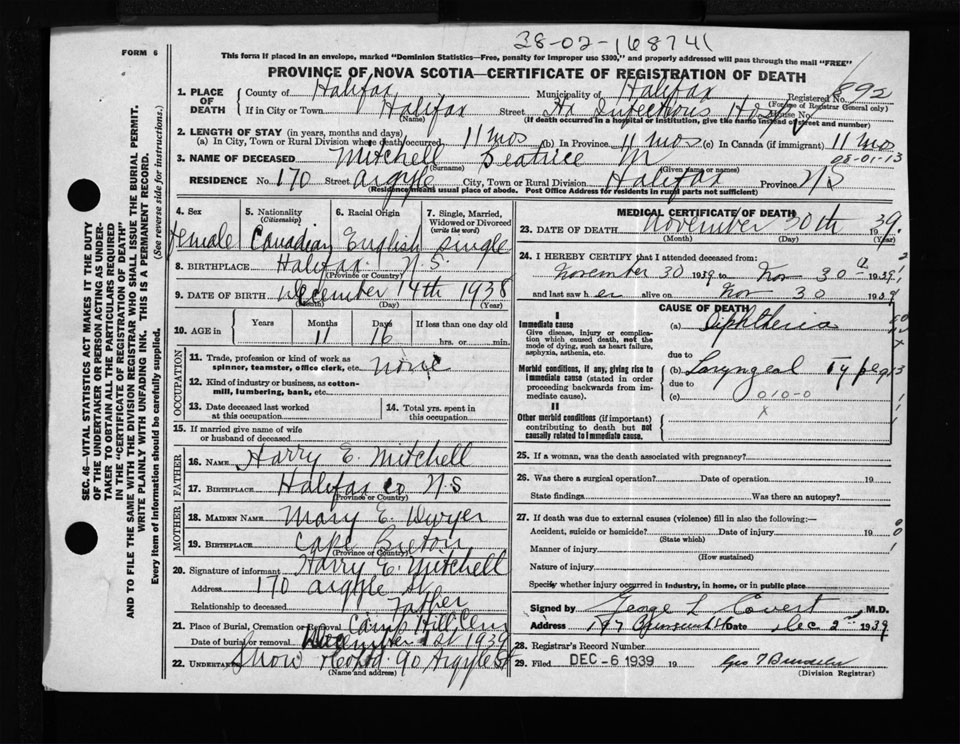 38-02-168741
FORM 6
This form if placed in an envelope, marked "Dominion Statistics—Free, penalty for improper use $300," and properly addressed will pass through the mail "FREE"
PROVINCE OF NOVA SCOTIA—CERTIFICATE OF REGISTRATION OF DEATH
SEC. 46—VITAL STATISTICS ACT MAKES IT THE DUTY
OF THE UNDERTAKER OR PERSON ACTING AS UNDER-
TAKER TO OBTAIN ALL THE PARTICULARS REQUIRED
IN THE "CERTIFICATE OF REGISTRATION OF DEATH"
AND TO FILE THE SAME WITH THE DIVISION REGISTRAR WHO SHALL ISSUE THE BURIAL PERMIT.
WRITE PLAINLY WITH UNFADING INK. THIS IS A PERMANENT RECORD.
Every item of Information should be carefully supplied. (See reverse side for instructions.)
1. PLACE OF DEATH County of Halifax Municipality of Halifax Registered No. 892
(For use of Registrar General only)
If in City or Town Halifax Street Infectious Hosp House No.
(Name) (If death occurred in a hospital or institution, give the name instead of street and number)
2. LENGTH OF STAY (in years, months and days)
(a) In City, Town or Rural Division where death occurred 11 mos (b) In Province 11 mos (c) In Canada (if immigrant) 11 mos
08-01-13
3. NAME OF DECEASED Mitchell Beatrice M
(Surname) (Given name or names)
RESIDENCE No. 170 Street Argyle City, Town or Rural Division Halifax Province NS
(Residence means usual place of abode. Post Office Address for residents in rural parts not sufficient)
4. Sex Female
5. Nationality (Citizenship) Canadian
6. Racial Origin English
7. Single, Married, Widowed or Divorced (write the word) single
8. BIRTHPLACE Halifax N.S.
(Province or Country)
9. DATE OF BIRTH December 14th 1938
(Month) (Day) (Year)
10. AGE in Years Months 11 Days 16 If less than one day old hrs. or min.
OCCUPATION
11. Trade, profession or kind of work as spinner, teamster, office clerk, etc. none
12. Kind of industry or business, as cotton-mill, lumbering, bank, etc.
13. Date deceased last worked at this occupation
14. Total yrs. spent in this occupation
15. If married give name of wife or husband of deceased
FATHER
16. NAME Harry E. Mitchell
17. BIRTHPLACE Halifax Co N.S
(Province or Country)
MOTHER
18. MAIDEN NAME Mary E. Dwyer
19. BIRTHPLACE Cape Breton
(Province or Country)
20. Signature of informant Harry E. Mitchell
Address 170 Argyle St
Relationship to deceased Father
21. Place of Burial, Cremation or Removal Camp Hill Cem
Date of burial or removal December 1st 1939
22. UNDERTAKER Snow 90 Argyle St
(Name and address)
MEDICAL CERTIFICATE OF DEATH
23. DATE OF DEATH November 30th 1939.
(Month) (Day) (Year)
24. I HEREBY CERTIFY that I attended deceased from:
November 30 1939 to Nov 30th 1939
and last saw her alive on Nov 30 1939
CAUSE OF DEATH
I
Immediate cause
Give disease, injury or complication which caused death, not the mode of dying, such as heart failure, asphyxia, asthenia, etc.
(a) Diphtheria
due to
Morbid conditions, if any, giving rise to immediate cause (stated in order proceeding backwards from immediate cause).
(b) Laryngeal Type
due to
(c) 010-0
II
Other morbid conditions (if important) contributing to death but not causally related to immediate cause.
x
25. If a woman, was the death associated with pregnancy?
26. Was there a surgical operation? Date of operation 19
State findings Was there an autopsy?
27. If death was due to external causes (violence) fill in also the following:—
Accident, suicide or homicide? Date of injury 19
(State which)
Manner of injury
(How sustained)
Nature of injury
Specify whether injury occurred in industry, in home, or in public place
Signed by George L Covert M.D.
Address Date Dec 2nd 1939
28. Registrar's Record Number
29. Filed DEC -6 1939 19
(Division Registrar)